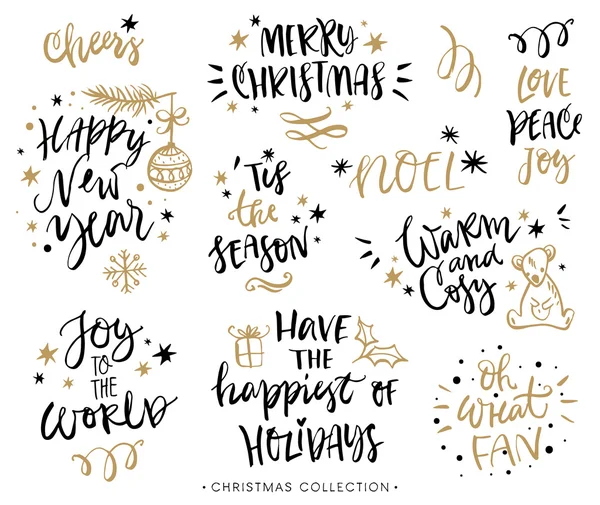 Cheers
MERRY
CHRISTMAS
LOVE
PEACE
JOY
HAPPY
New
year
'Tis
the
SEASON
NOEL
Warm
and
Cosy
Joy
TO
THE
WORLD
HAVE
THE
happiest OF
HOLiDAYS
oh
what
FAN
• CHRISTMAS COLLECTION •